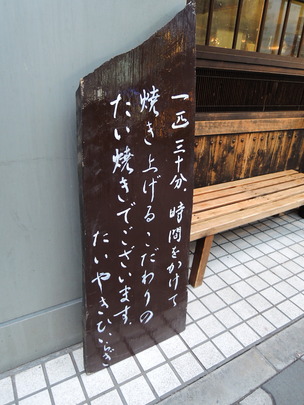 一匹三十分、時間をかけて
焼き上げるこだわりの
たい焼きでございます。
たいやきひいらぎ